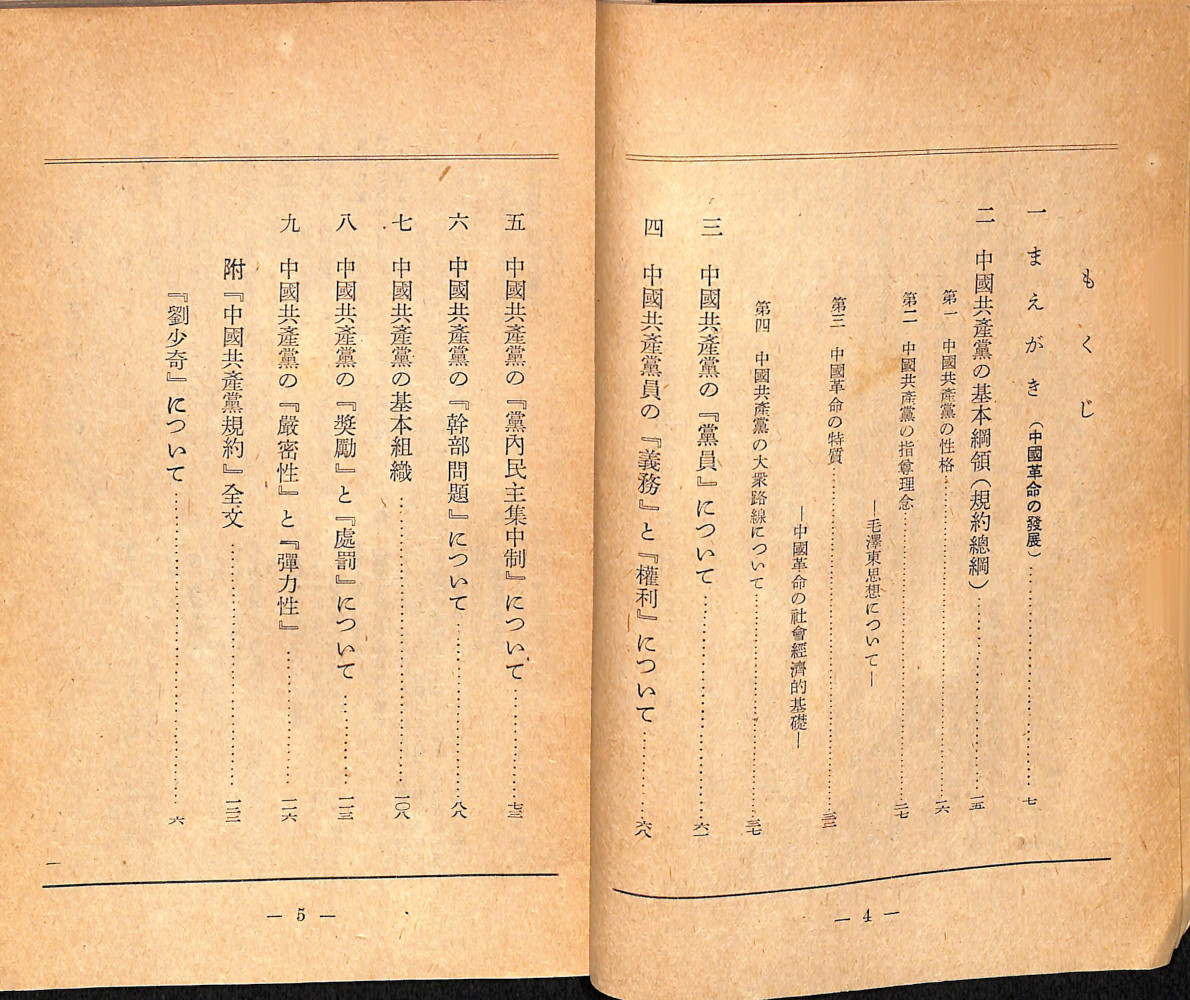 もくじ
一 まえがき（中國革命の發展）……七
二 中國共產黨の基本綱領（規約總綱）……一五
第一 中國共產黨の性格……一六
第二 中國共產黨の指導理念……二七
―毛澤東思想について―
第三 中國革命の特質……三二
―中國革命の社會經濟的基礎―
第四 中國共產黨の大衆路線について……三七
三 中國共產黨の『黨員』について……六一
四 中國共產黨員の『義務』と『權利』について……六八
― 4 ―
五 中國共產黨の『黨內民主集中制』について……七三
六 中國共產黨の『幹部問題』について……八八
七 中國共產黨の基本組織……一〇八
八 中國共產黨の『獎勵』と『處罰』について……一一三
九 中國共產黨の『嚴密性』と『彈力性』……一一六
附『中國共產黨規約』全文……一二三
『劉少奇』について……六
― 5 ―